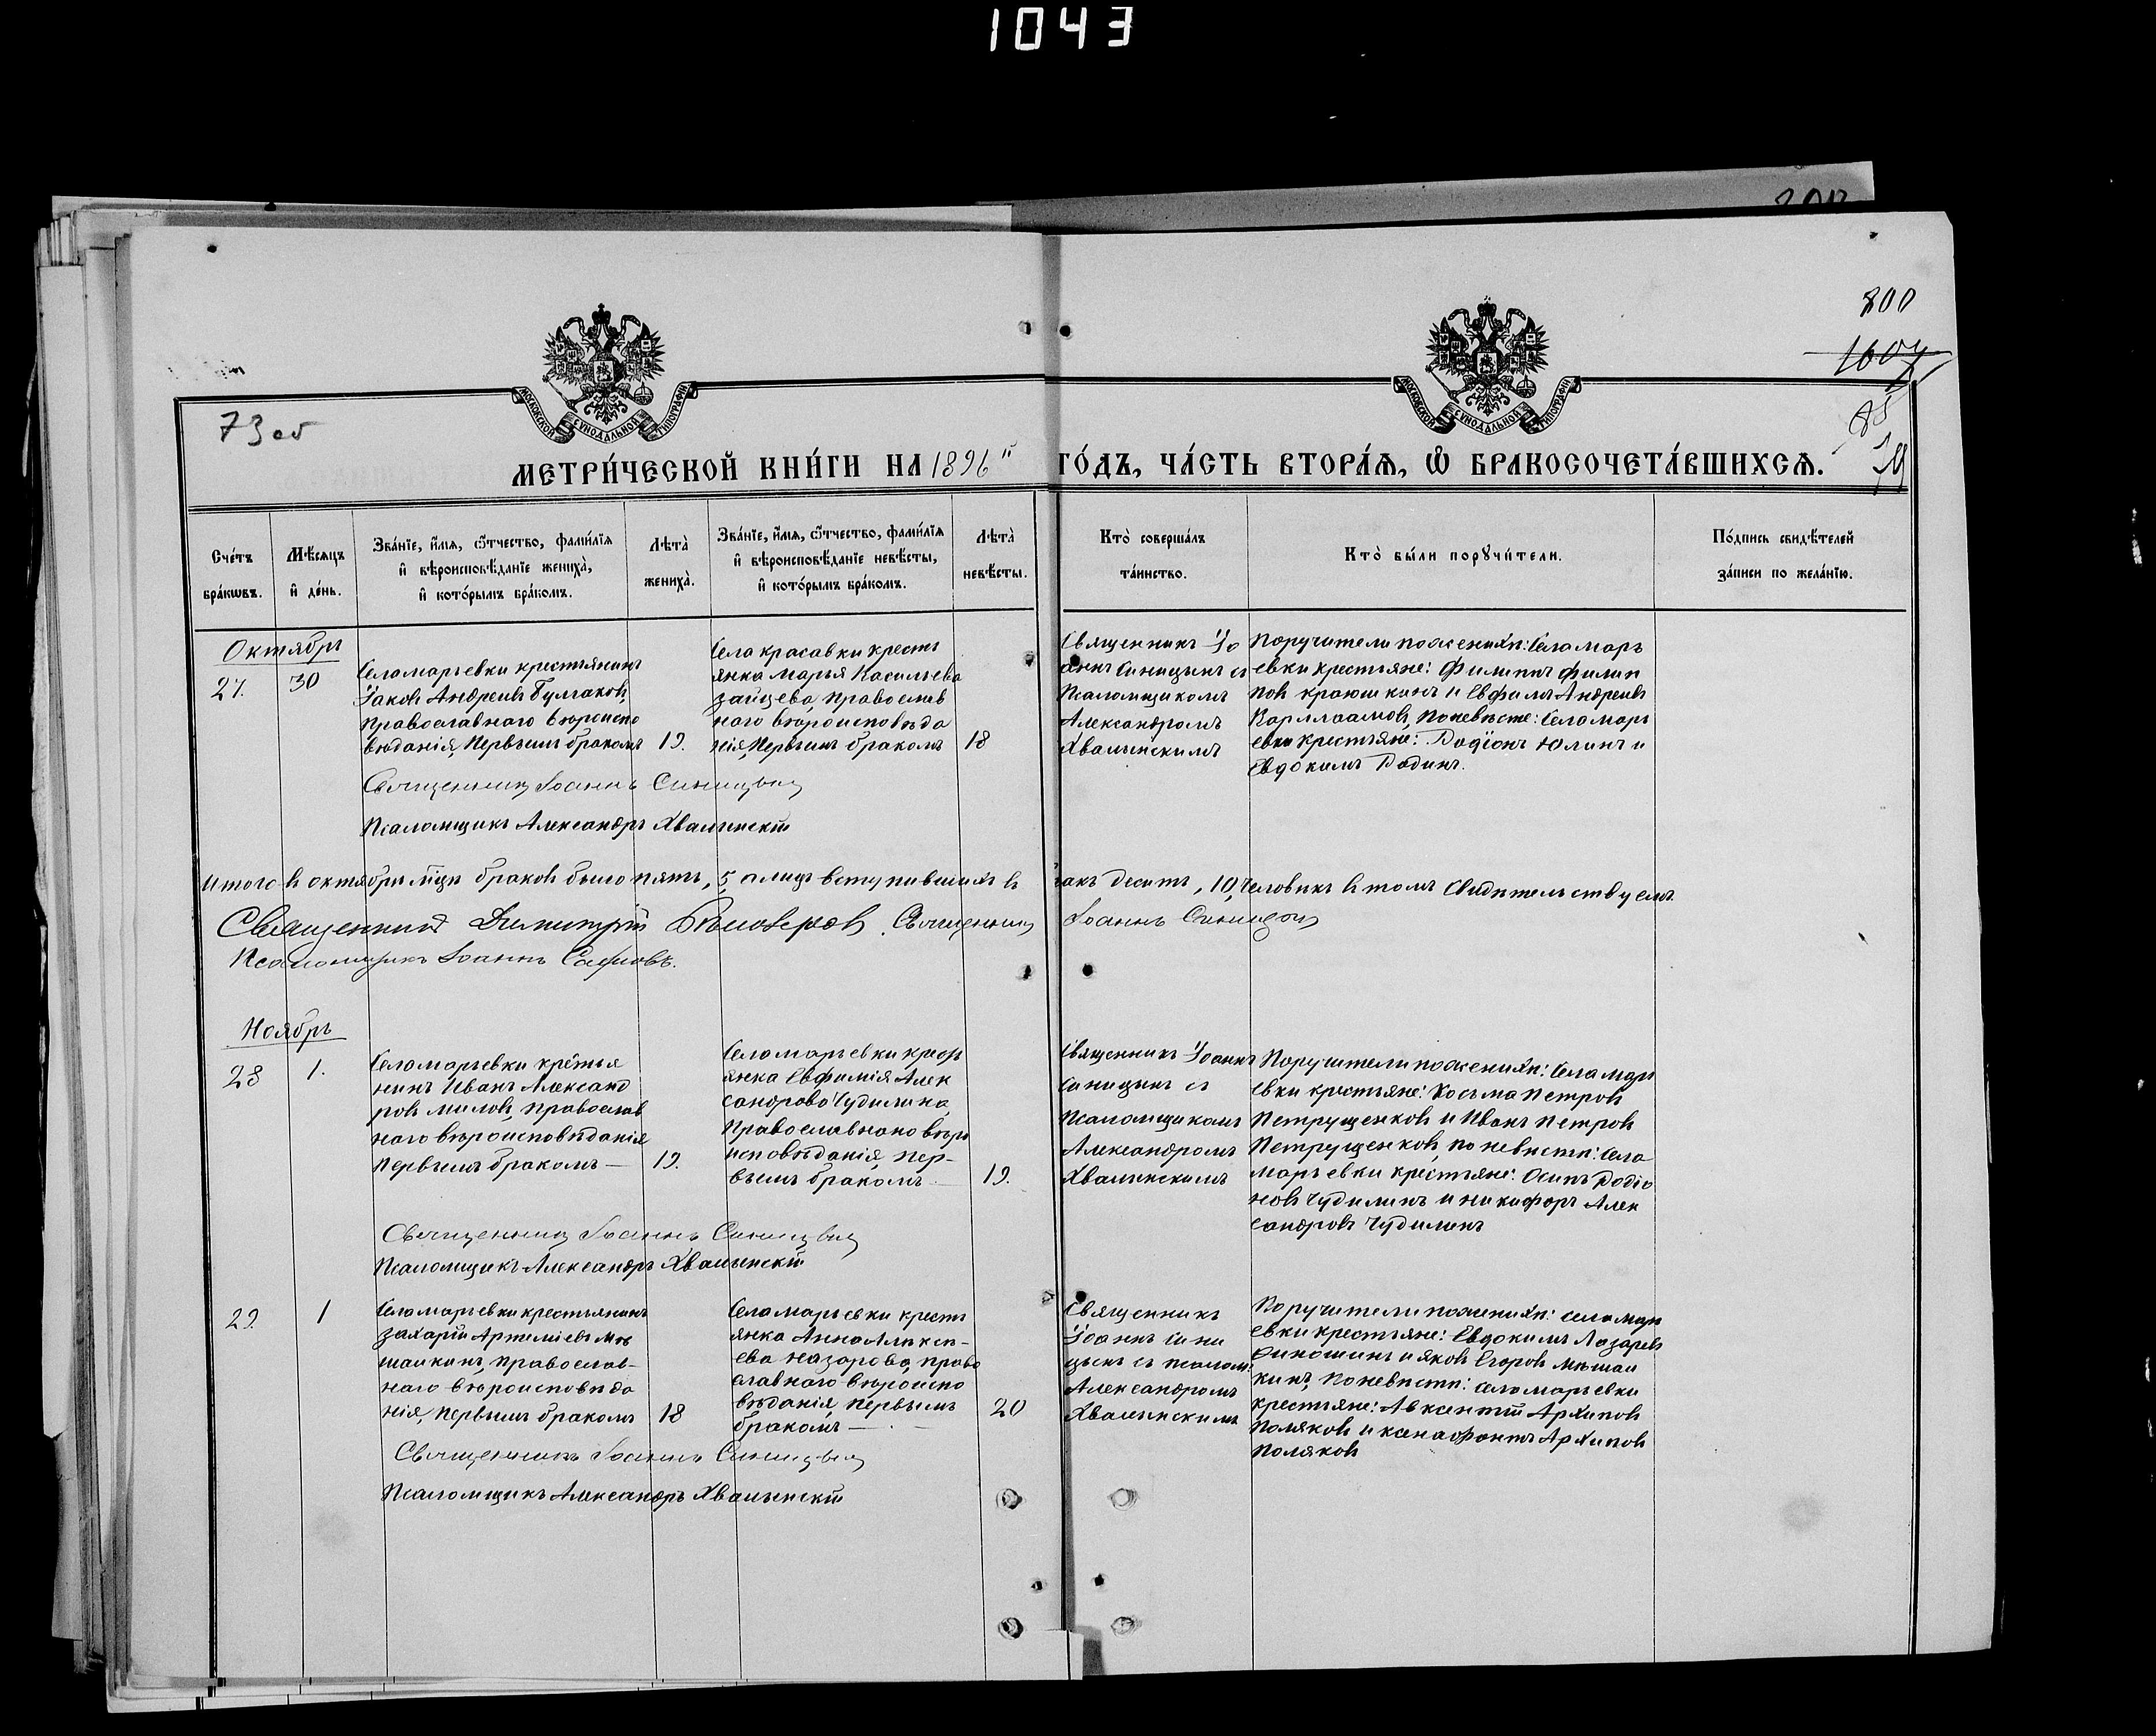 1043
800
1607
85
74
73 об
МОСКОВСКОЙ СѴНОДАЛЬНОЙ ТИПОГРАФІИ
МОСКОВСКОЙ СѴНОДАЛЬНОЙ ТИПОГРАФІИ
МЕТРИ́ЧЕСКОЙ КНИ́ГИ НА 1896 ГО́ДЪ, ЧА́СТЬ ВТОРА́Ѧ, Ѽ БРАКОСОЧЕТА́ВШИХСѦ.
Сче́тъ бра́кѡвъ.
Мѣ́сѧцъ и де́нь.
Зва́нїе, и́мѧ, ѻ́тчество, фами́лїѧ
и вѣроисповѣ́данїе жениха̀,
и кото́рымъ бра́комъ.
Лѣта̀ жениха̀.
Зва́нїе, и́мѧ, ѻ́тчество, фами́лїѧ
и вѣроисповѣ́данїе невѣ́сты,
и кото́рымъ бра́комъ.
Лѣта̀ невѣ́сты.
Кто̀ соверша́лъ
та́инство.
Кто̀ бы́ли порꙋчи́тели.
По́дпись свидѣ́телей
за́писи по жела́нїю.
Октябрь
27.
30
Села марьевки крестьянинъ
Іаковъ Андреевъ Булгаковъ,
православнаго вѣроиспо
вѣданія, Первымъ бракомъ
19.
Села красавки кресть
янка марья Васильева
зайцева, Православ
наго вѣроисповѣда
нія, Первымъ бракомъ
18
Священникъ Іо
аннъ Синицынъ съ
Псаломщикомъ
Александромъ
Хвалынскимъ
Поручители по женихѣ: Села марь
евки крестьяне: Филиппъ филип
повъ краюшкинъ и Евфимъ Андреевъ
Варлаамовъ, По невѣсте: Села марь
евки крестьяне: Родіонъ Юлинъ и
Евдокимъ Родинъ.
Священникъ Іоаннъ Синицынъ
Псаломщикъ Александръ Хвалынскій
Итого въ октябрѣ мѣсцѣ браковъ было пять, 5, а лицъ вступившихъ въ бракъ десять, 10, человѣкъ въ томъ Свидѣтельствуемъ
Священникъ Димитрій Священникъ Іоаннъ Синицынъ
Псаломщикъ Іоаннъ
Ноябрь
28
1.
Села марьевки крестья
нинъ Иванъ Александ
ровъ милов, православ
наго вѣроисповѣданія
первымъ бракомъ —
19.
Села марьевки кресть
янка Евфимія Алек
сандрова Чудилина,
Православнаго вѣро
исповѣданія, пер-
вымъ бракомъ —
19.
Священникъ Іоаннъ
Синицынъ съ
Псаломщикомъ
Александромъ
Хвалынскимъ
Поручители по женихѣ: Села марь
евки крестьяне: Косьма Петровъ
Петрущенковъ и Иванъ Петровъ
Петрущенковъ, по невѣстѣ: Села
марьевки крестьяне: Осипъ Родіо
новъ Чудилинъ и никифоръ Алек
сандровъ Чудилинъ
Священникъ Іоаннъ Синицынъ
Псаломщикъ Александръ Хвалынскій
29.
1
Села марьевки крестьянинъ
захарій Артеміевъ мѣ
шаикинъ, православ-
наго вѣроисповѣда
нія, первымъ бракомъ
18
Села марьевки кресть
янка Анна Алѣксѣ-
ева назарова, право
славнаго вѣроиспо
вѣданія, первымъ
бракомъ —
20
Священникъ
Іоаннъ Сини
цынъ съ псалом:
Александромъ
Хвалынскимъ
Поручители по женихѣ: села марь
евки крестьяне: Евдокимъ Лазаревъ
и яковъ Егоровъ мѣшаи
кинъ, По невѣстѣ: села марьевки
крестьяне: Авксентій Архиповъ
Поляковъ и ксенофонтъ Архиповъ
Поляковъ
Священникъ Іоаннъ Синицынъ
Псаломщикъ Александръ Хвалынскій